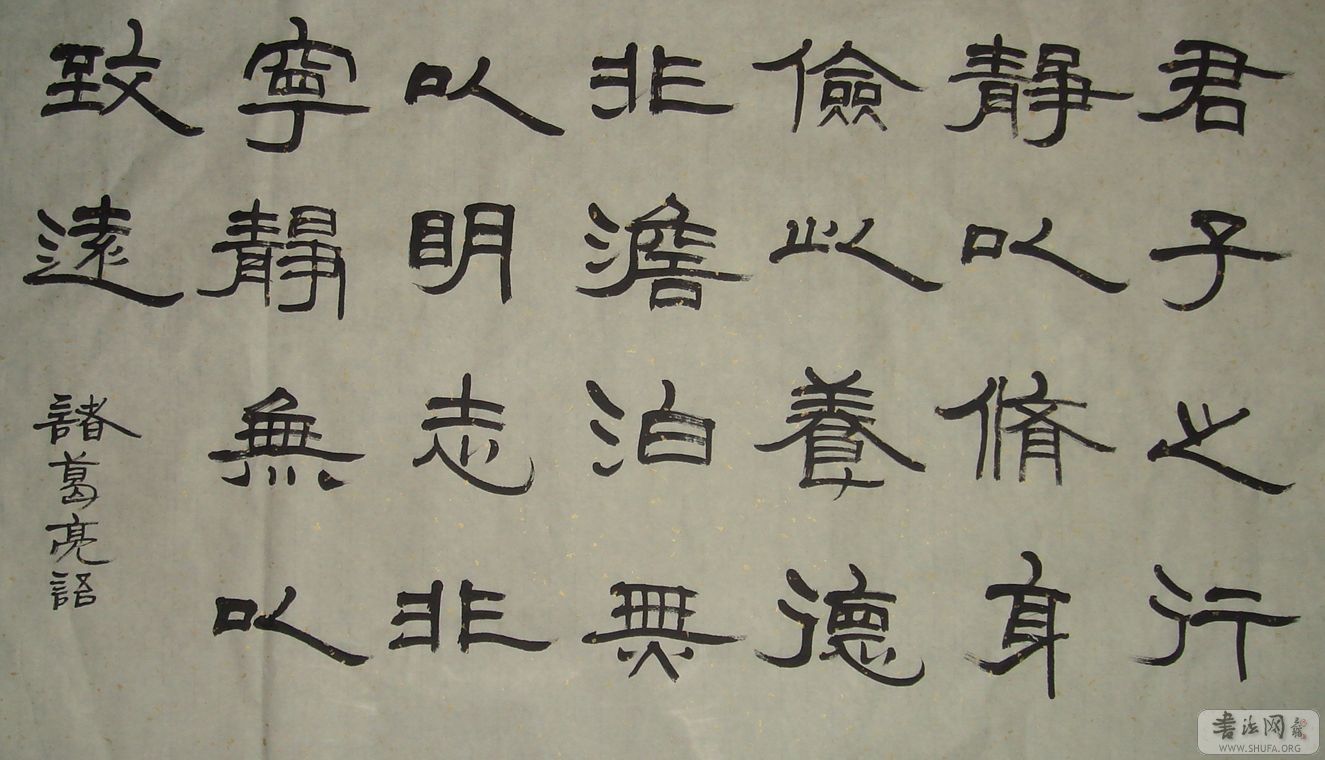 君子之行
靜以脩身
儉以養德
非澹泊無
以明志非
寧靜無以
致遠
諸葛亮語
書法网
WWW.SHUFA.ORG